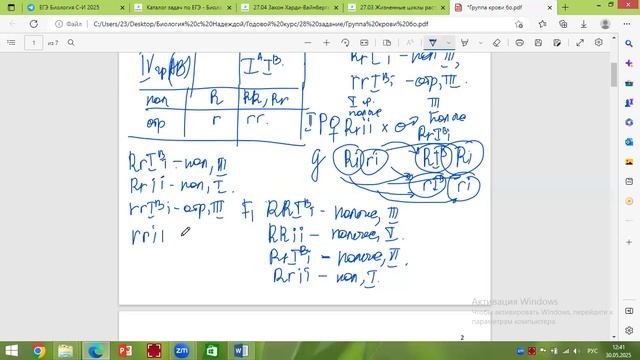 ЕГЭ Биология С-И 2025
Каталог задач по ЕГЭ - Биологи
27.04 Закон Харди-Вайнберга
27.03 Жизненные циклы раст
*Группа крови 6о.pdf
C:/Users/23/Desktop/Биология%20с%20Надеждой/Годовой%20курс/28%20задание/Группа%20крови%20бо.pdf
1 из 2
IV гр(AB) I^A I^B
пол R RR, Rr
отр r rr.
rr I^B i - отр, III
I гр. III
полож полож
I P ♀ Rrii × ♂ Rr I^B i
g Ri ri R I^B Ri
r I^B ri
Rr I^B i - пол, III
Rrii - пол, I.
rr I^B i - отр, III
rrii
F₁ RR I^B i - полож, III
RRii - полож, I.
Rr I^B i - полож, III.
Rrii - пол, I.
Активация Windows
Чтобы активировать Windows, перейдите к параметрам компьютера.
2
РУС
12:41
30.05.2025